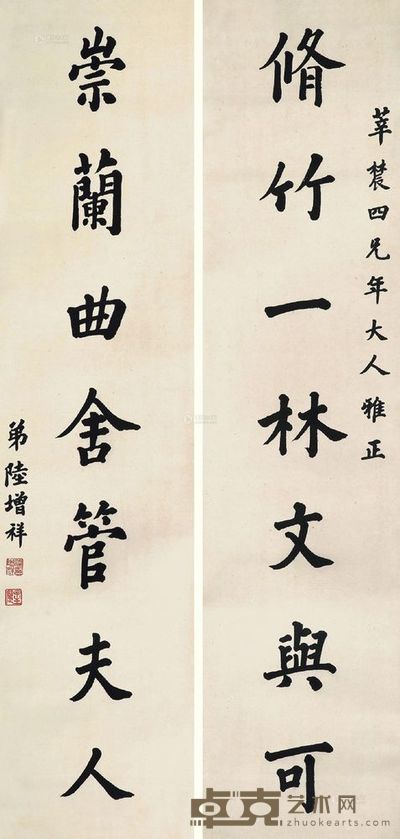 莘農四兄年大人雅正
脩竹一林文與可
崇蘭曲舍管夫人
弟陸增祥
卓克艺术网
www.zhuokearts.com